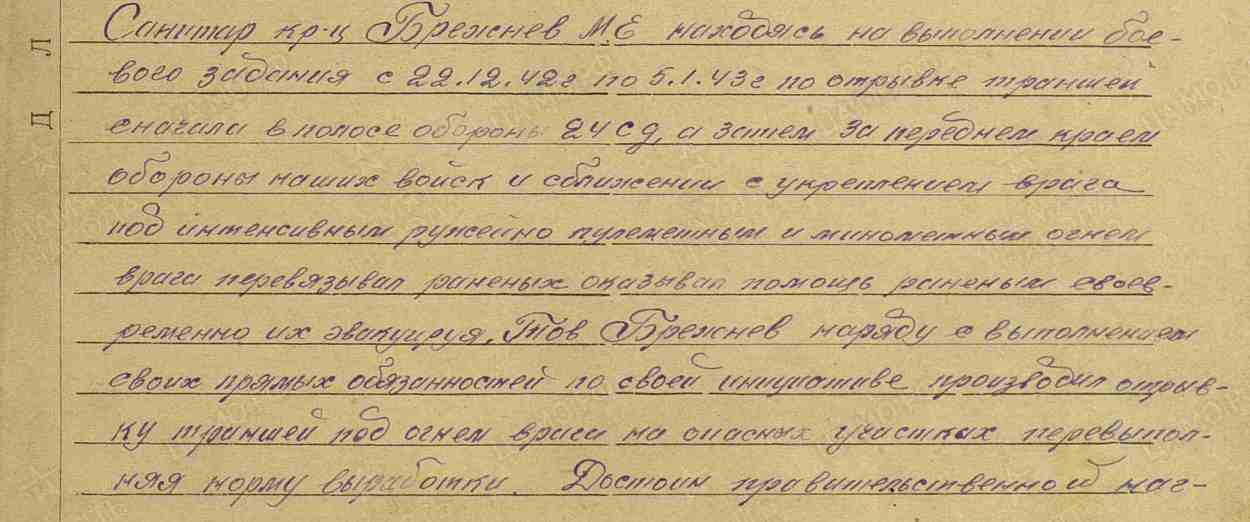 Санитар кр-ц Брежнев М.Е находясь на выполнении бое-
вого задания с 22.12.42г по 5.1.43г по отрывке траншеи
сначала в полосе обороны 24 сд, а затем за переднем краем
обороны наших войск и сближении с укреплением врага
под интенсивным ружейно пулеметным и минометным огнем
врага перевязывал раненых оказывал помощь раненым своев-
ременно их эвакуируя. Тов Брежнев наряду с выполнением
своих прямых обязанностей по своей инициативе производил отрыв-
ку траншей под огнем врага на опасных участках перевыпол-
няя норму выработки. Достоин правительственной наг-
Л
Д